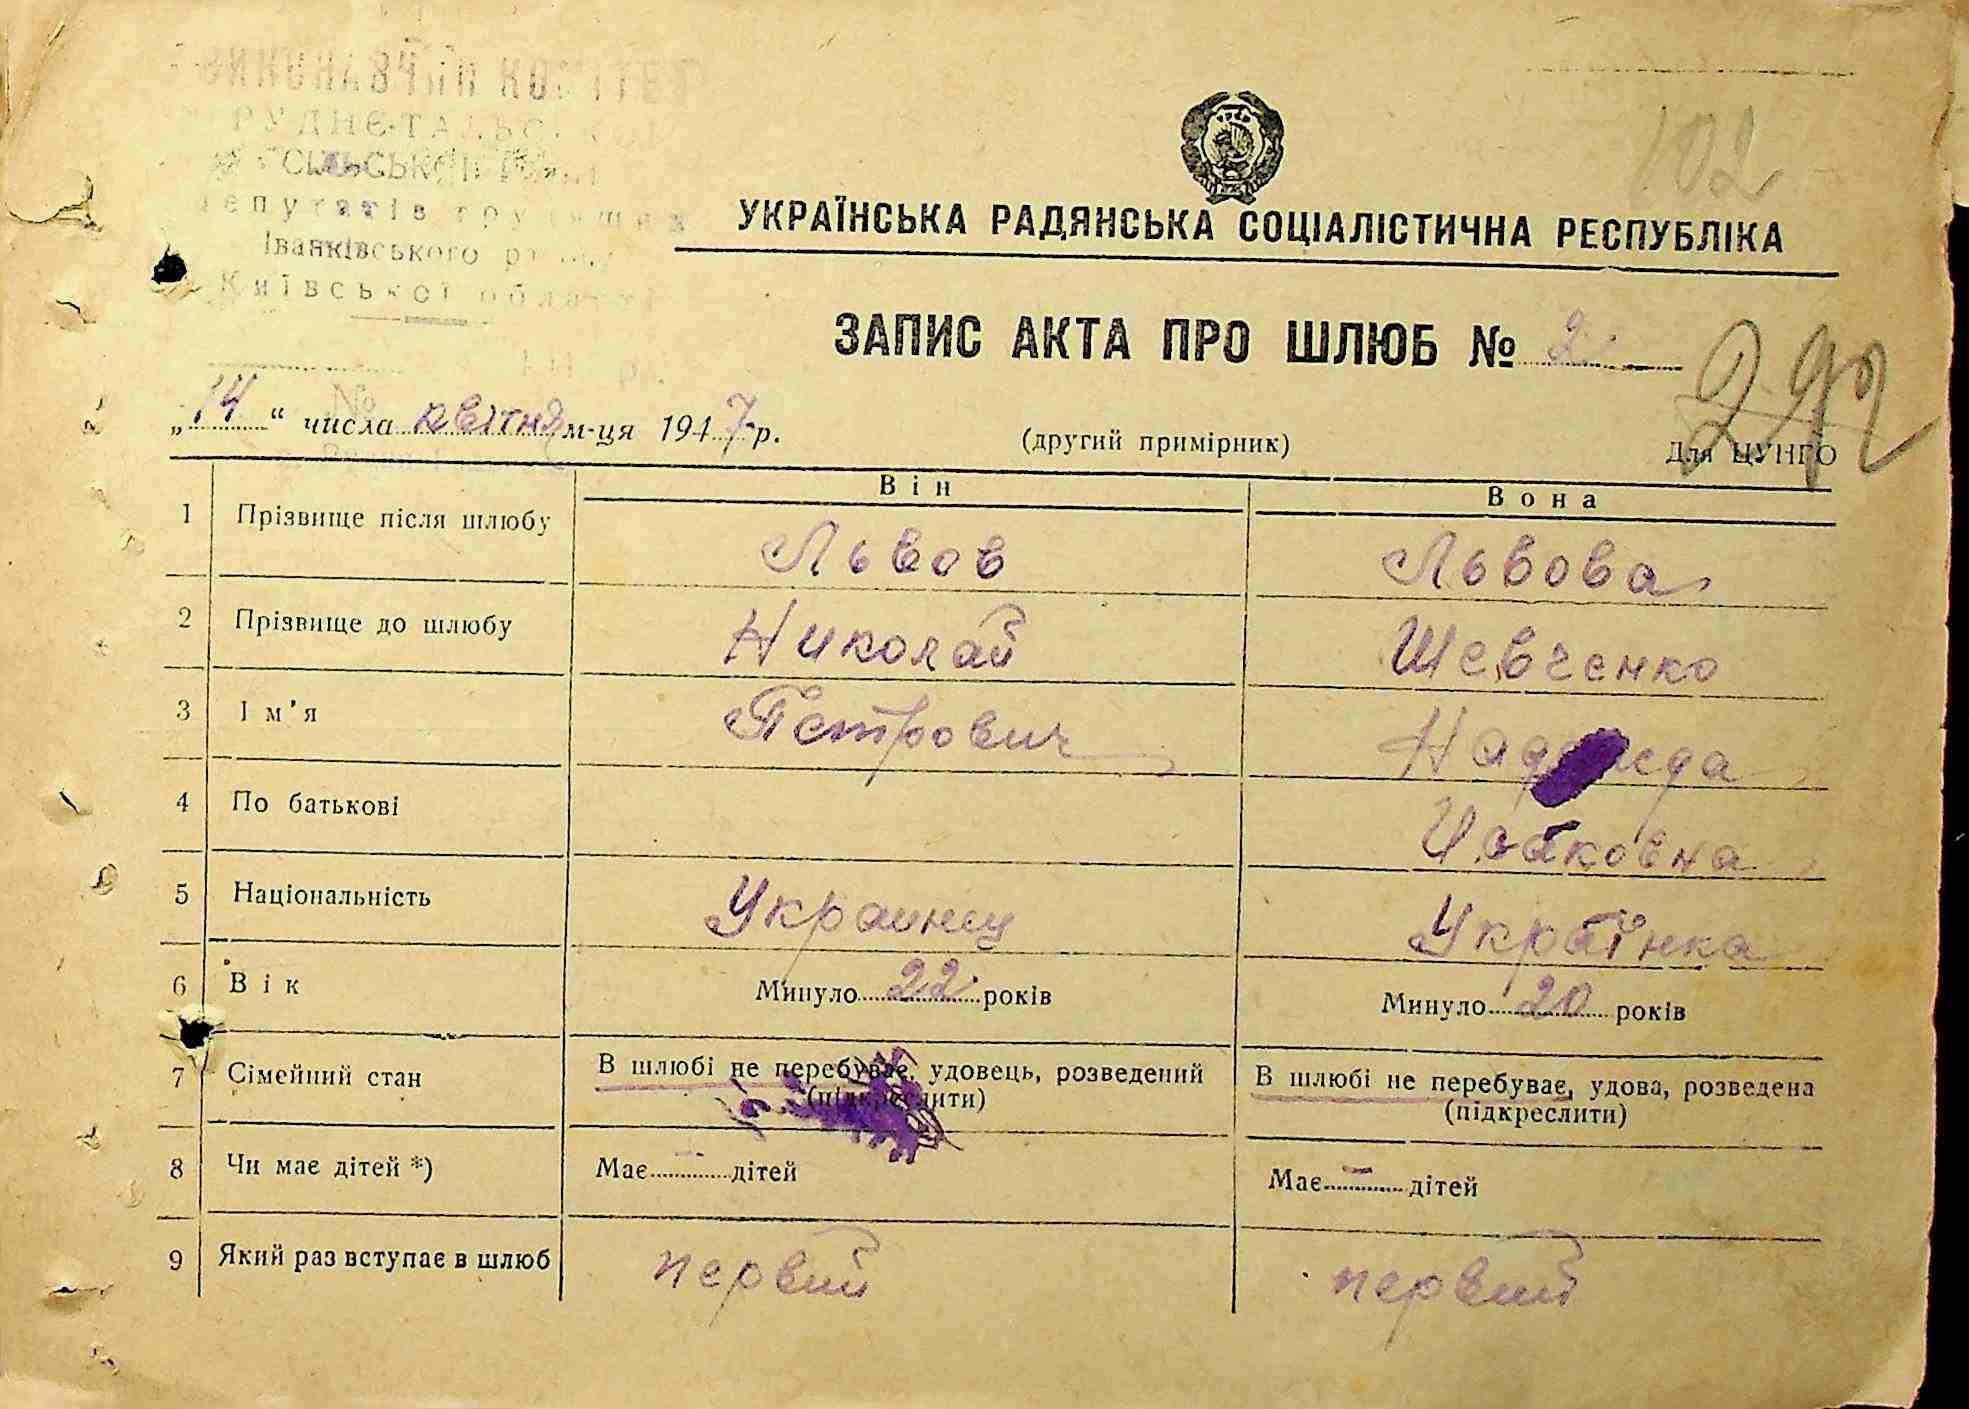 ВИКОНАВЧИЙ КОМІТЕТ
РУДНЄ-ТАЛЬСЬКОЇ
СІЛЬСЬКОЇ РАДИ
депутатів трудящих
Іванківського району
Київської області
№
102
УКРАЇНСЬКА РАДЯНСЬКА СОЦІАЛІСТИЧНА РЕСПУБЛІКА
ЗАПИС АКТА ПРО ШЛЮБ № 2
292
„14“ числа квітня м-ця 1947 р.
(другий примірник)
Для ЦУНГО
Він Вона
1 Прізвище після шлюбу Львов Львова
2 Прізвище до шлюбу Николай Шевченко
3 Ім'я Петрович Надежда
4 По батькові
5 Національність Украинец Українка
6 Вік Минуло 22 років Минуло 20 років
7 Сімейний стан В шлюбі не перебуває, удовець, розведений В шлюбі не перебуває, удова, розведена
(підкреслити) (підкреслити)
8 Чи має дітей *) Має — дітей Має — дітей
9 Який раз вступає в шлюб первий первий